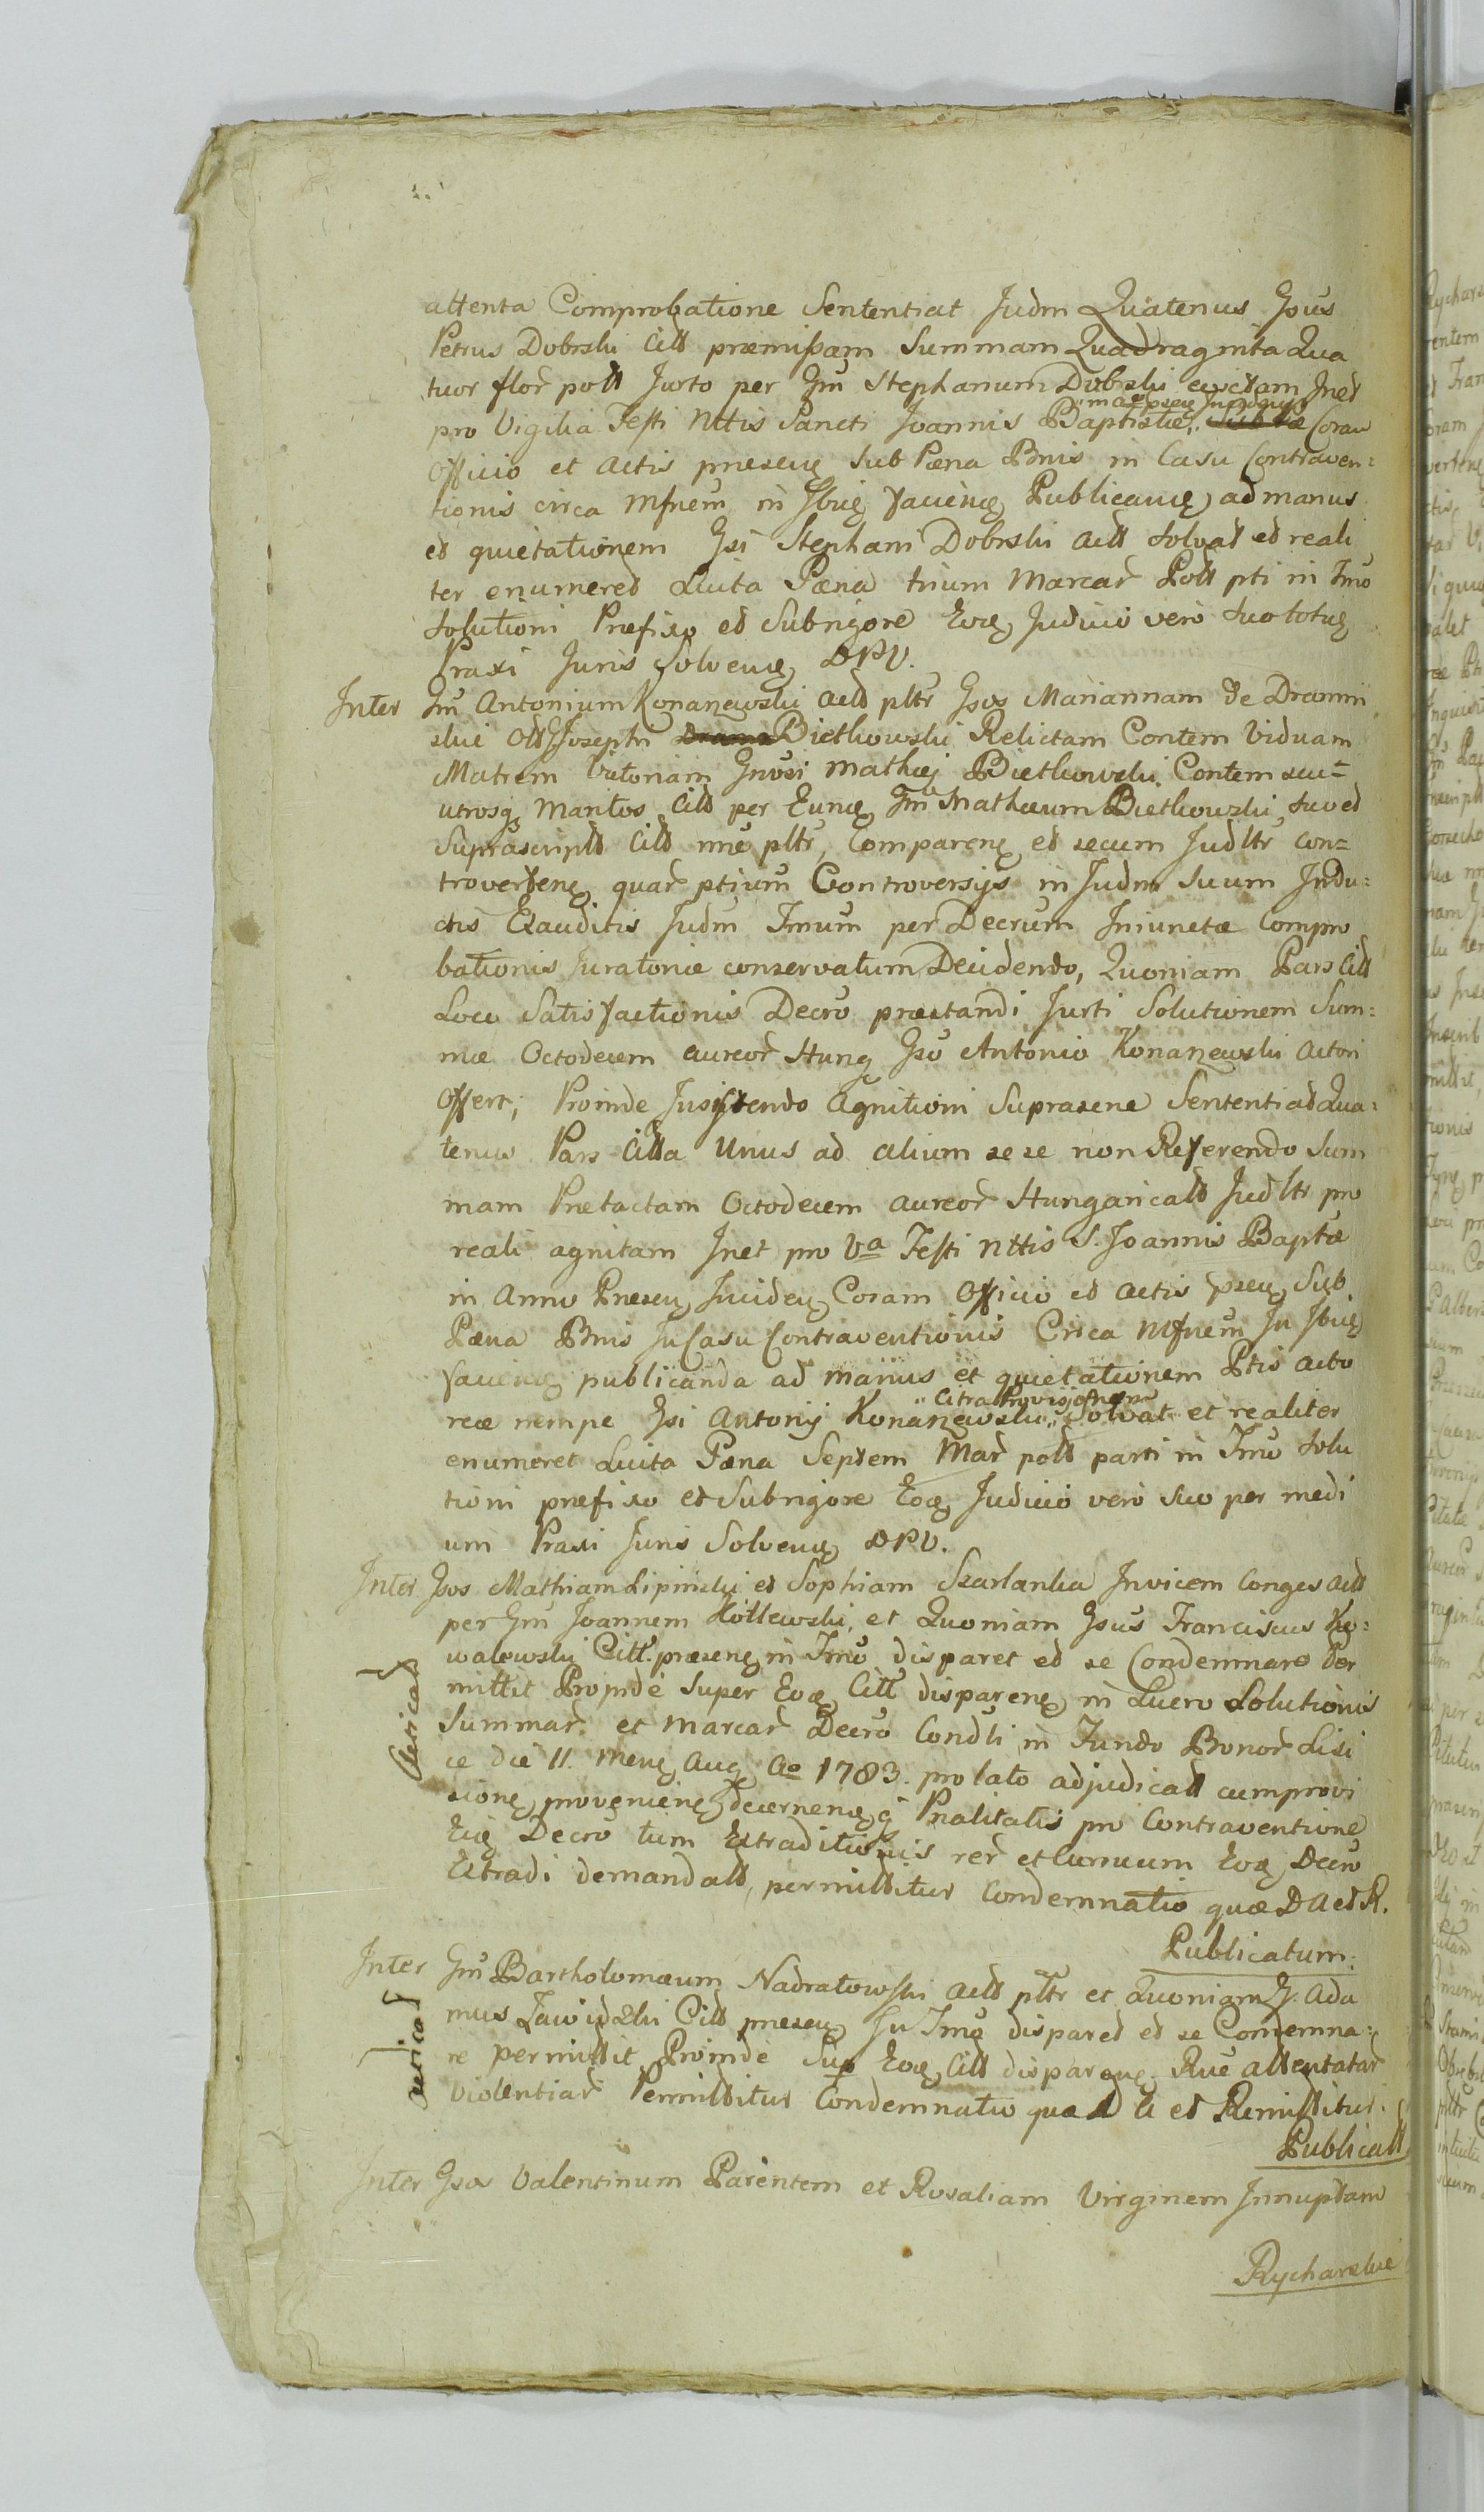 attenta Comprobatione Sententiat Judm Quatenus Gsus
Petrus Dobrski Citt præmissam Summam Quadraginta Qua
tuor flor poll Jurto per Gm Stephanum Dobrski evictam Inet
pro Vigilia Festi Nttis Sancti Joannis Baptistæ, in Ao præse Incideñ Coram
Officio et Actis præseñ Sub Pæna Bnis in Casu Contraven=
tionis circa Mfnem in faciene Publicanæ ad manus
et quietationem Gsi Stephani Dobrski Actt Solvat et reali
ter enumeret Luita Pæna trium Marcar Poll pti in Tmo
Solutioni Præfixo et Subrigore Ejusq Judicio vero Suo totuq
Praxi Juris Solvenq DPV.
Inter Gm Antonium Konarzewski Actt pltr Gsos Mariannam de Dramin
skie Olt Joseph Biethowski Relictam Contem Viduam
Matrem Vitoriam Gnosi Mathæj Biethowski Contem seu=
utrosq Mantos Citt per Eunq Gm Mathæum Biethowski Suo et
Suprascriptt Citt nne pltr, Comparenq et secum Judltr con=
trovertenq quar ptium Controversijs in Judm Suum Indu=
ctis Exauditis Judm Tmum per Decrum Iniunctæ Compro
bationis Juratoriæ conservatum Decidendo, Quoniam Pars Citt
Loco Satisfactionis Decro præstandi Jurti Solutionem Sum=
mæ Octodecem aureor Hung Gso Antonio Konarzewski Actori
Offert; Proinde Insistendo Agnitioni Supraseñe Sententiat Qua=
tenus Pars Citta Unus ad alium sese non Referendo Sum
mam Prætactam Octodecem aureor Hungaricatt Judltr pro
reali agnitam Inet pro Va Festi Nttis S. Joannis Baptæ
in Anno Præseñ Incideñ Coram Officio et Actis pseñ Sub
Pæna Bnis In Casu Contraventionis Circa Mfnem In
facienq publicanda ad manus et quietationem Ptis Acto
reæ nempe Gsi Antonij Konarzewski, Citra Provisionem Solvat et realiter
enumeret Luita Pæna Septem Mar poll parti in Tmo Solu
tioni præfixo et Subrigore Ejusq Judicio vero Suo per medi
um Praxi Juris Solvenq DPV.
Inter Gsos Mathiam Lipinski et Sophiam Szarlanka Invicem Conges Actt
per Gm Joannem Kottewski, et Quoniam Gsus Franciscus Ko=
walewski Citt. præsenq in Tmo disparet et se Condemnare Per
mittit Proinde Super Eoq Citt disparenq in Lucro Solutionis
Summar. et Marcar Decro Condti in Fundo Bonor Lisi
ce die 11. Menq Aug Ao 1783. prolato adjudicatt cum provi
sione provenienq decernenq q Pnalitatis pro Contraventione
Ejq Decro tum Extraditionis rer et lucrum Eoq Decro
Extradi demandatt, permittitur Condemnatio quæ D A et R.
Publicatum.
Inter Gm Bartholomæum Nadratowski Actt pltr et Quoniam G. Ada
mus Zawidzki Citt præseñ In Tmo disparet et se Condemna=
re permittit Proinde Sup Eoq Citt disparenq Rne attentatar
violentiar Permittitur Condemnatio quæ D A et Remittitur.
Publicatt
Inter Gsos Valentinum Parentem et Rosaliam Virginem Innuptam
Rycharskie